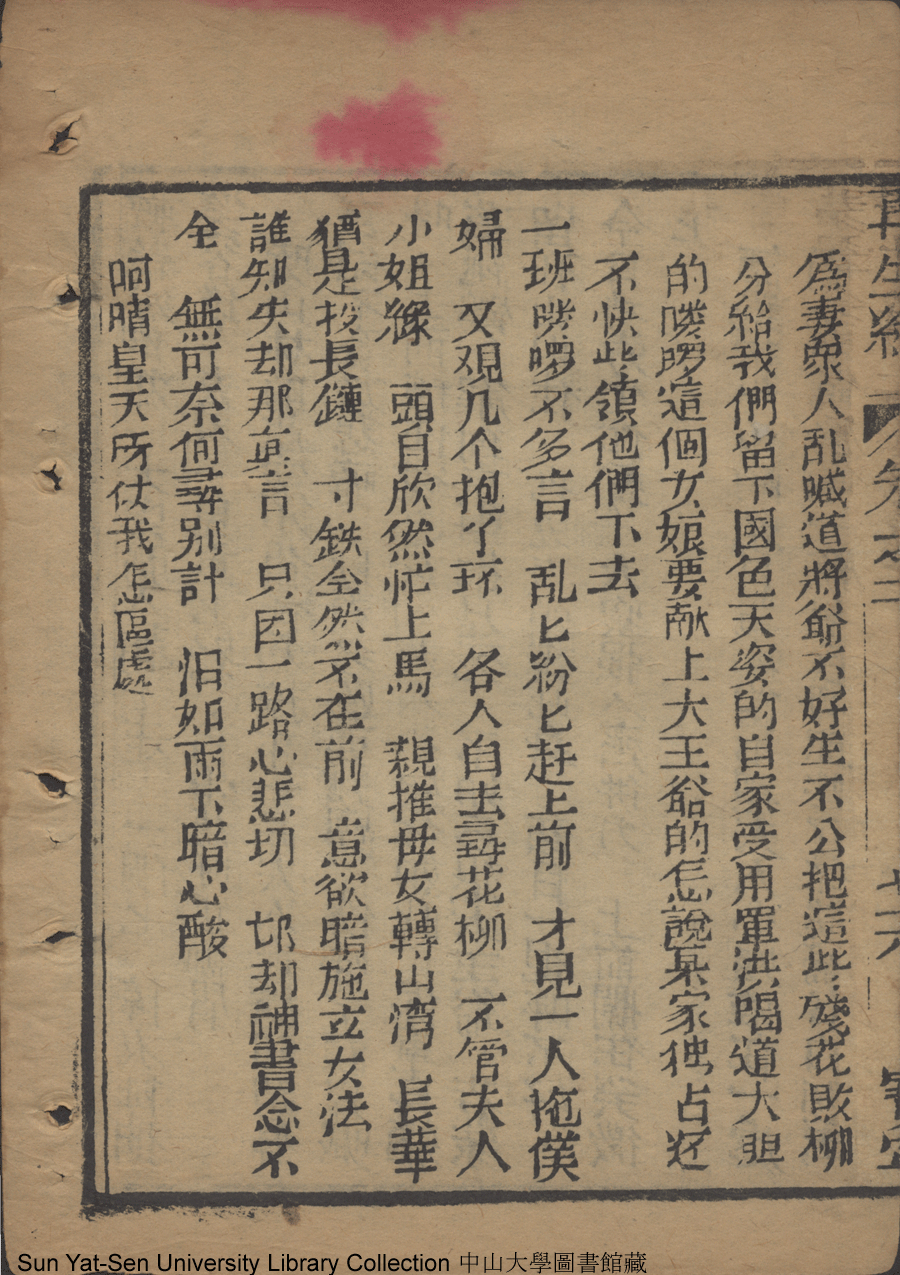 再生緣 卷之二
為妻衆人乱喊道將爺不好生不公把這些殘花敗柳
分給我們留下國色天姿的自家受用單洪喝道大胆
的嘍囉這個女娘要献上大王爺的怎說某家独占还
不快些領他們下去
一班嘍囉不多言 乱匕紛匕赶上前 才見一人拖僕
婦 又观几个抱丫环 各人自去尋花柳 不管夫人
小姐緣 頭目欣然忙上馬 親推母女轉山湾 長華
猶是投長鏈 寸鉄全然不在前 意欲暗施立女法
誰知失却那真言 只因一路心悲切 却神書念不
全 無可奈何尋别計 泪如雨下暗心酸
呵晴皇天所仗我怎區處
Sun Yat-Sen University Library Collection 中山大學圖書館藏